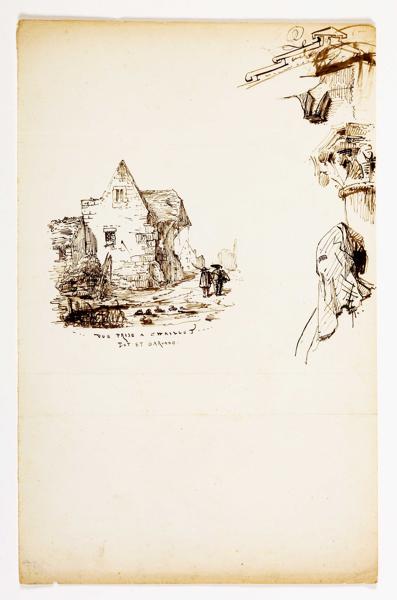 VUE PRISE A CHAILLOT
LOT ET GARONNE.